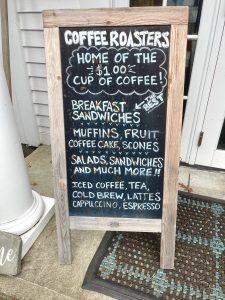 COFFEE ROASTERS
HOME OF THE
$1.00
CUP OF COFFEE!
BREAKFAST
SANDWICHES
THE BEST
MUFFINS, FRUIT
COFFEE CAKE, SCONES
SALADS, SANDWICHES
AND MUCH MORE!!
ICED COFFEE, TEA,
COLD BREW, LATTES
CAPPUCCINO, ESPRESSO